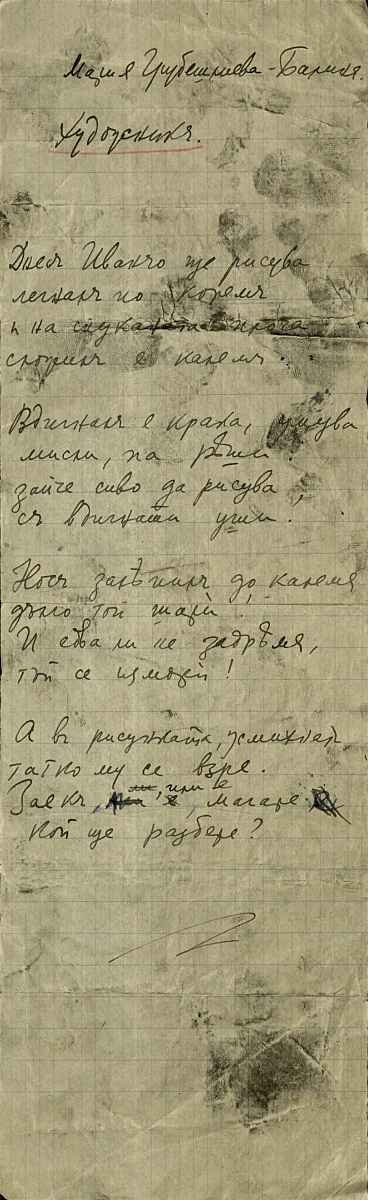 Мария Грубешлиева-Балкия.
Художникъ.
Днесъ Иванчо ще рисува
легналъ по коремъ
и на
е калемъ.
Вдигналъ е крака,
мисли, па рѣши:
зайче сиво да рисува
съ вдигнати уши.
Носъ залѣпилъ до калемя
дълго той шари!
И едва ли не задрѣмя,
тъй се измори!
А въ рисунката, усмихнатъ,
татко му се взре.
Заекъ ли, или е магаре
кой ще разбере?